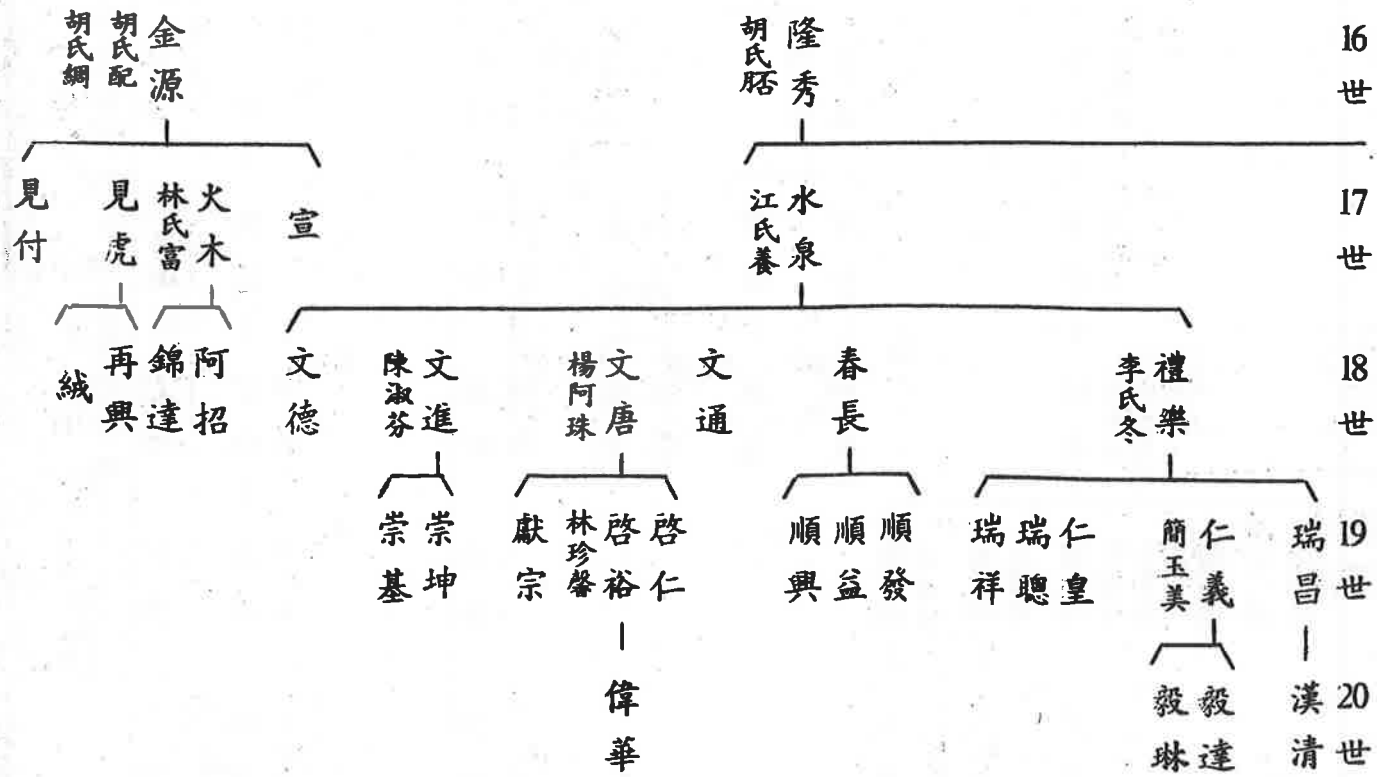 16世
隆秀
胡氏䏽
金源
胡氏配
胡氏綢
17世
水泉
江氏養
宣
火木
林氏富
見虎
見付
18世
禮樂
李氏冬
春長
文通
文唐
楊阿珠
文進
陳淑芬
文德
阿招
錦達
再興
絨
19世
瑞昌
仁義
簡玉美
仁皇
瑞聰
瑞祥
順發
順益
順興
啓仁
啓裕
林珍馨
獻宗
崇坤
崇基
20世
漢清
毅達
毅琳
偉華